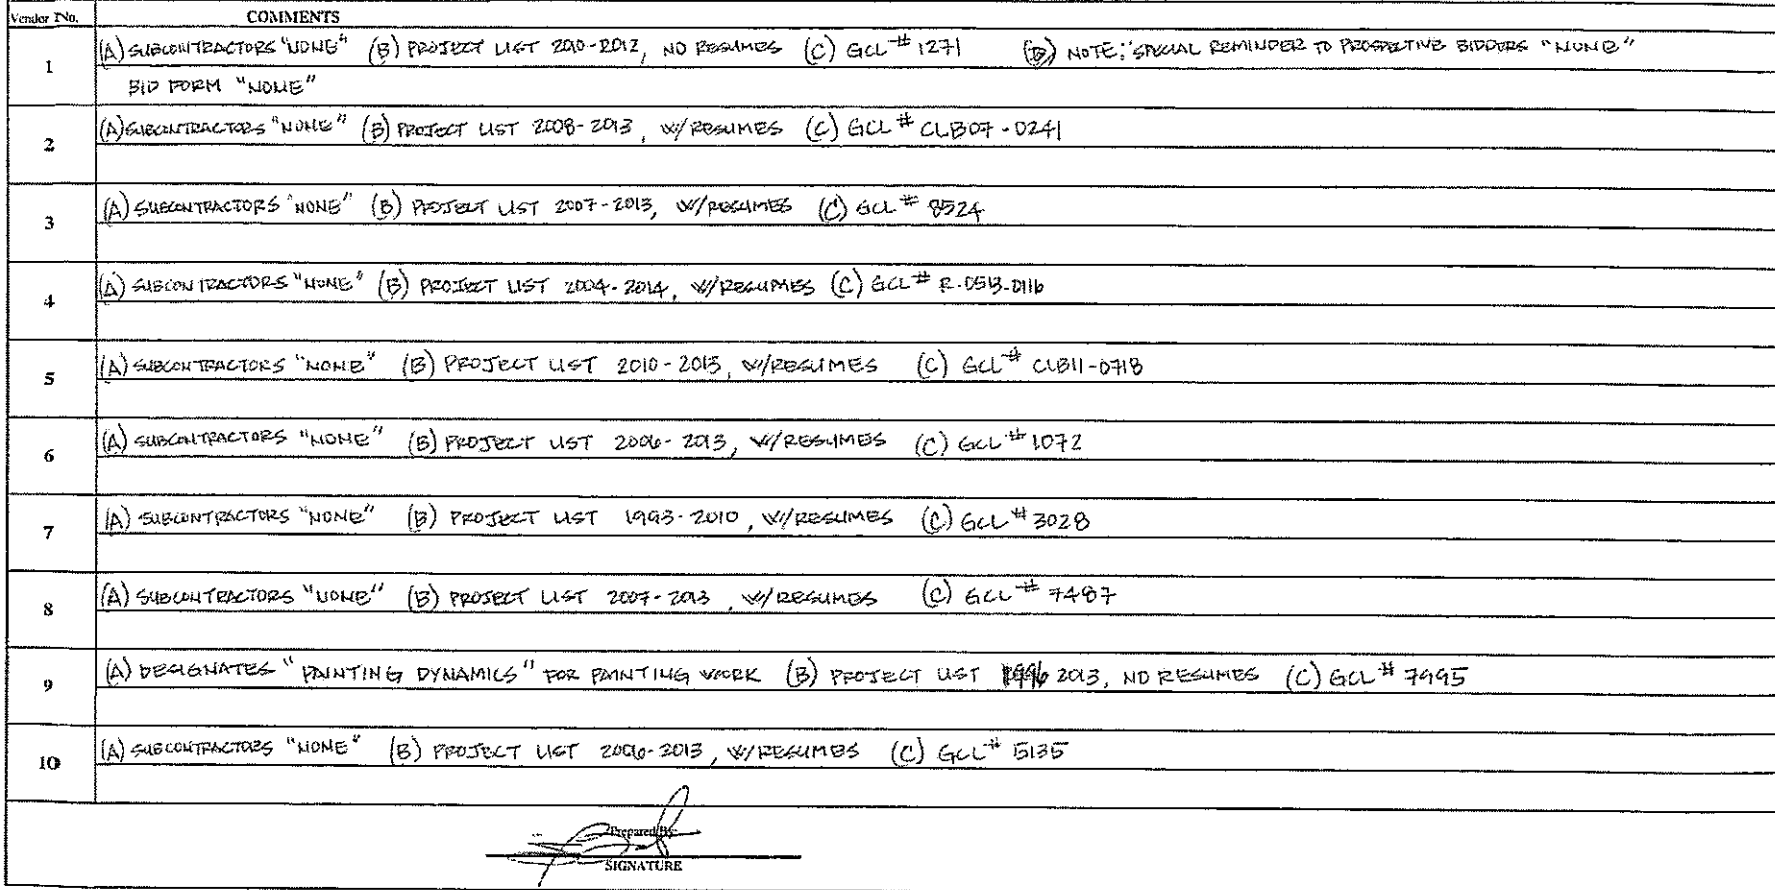 Vendor No. COMMENTS
1 (A) SUBCONTRACTORS "NONE" (B) PROJECT LIST 2010-2012, NO RESUMES (C) GCL # 1271 (D) NOTE: 'SPECIAL REMINDER TO PROSPECTIVE BIDDERS "NONE"
BID FORM "NONE"
2 (A) SUBCONTRACTORS "NONE" (B) PROJECT LIST 2008-2013, W/RESUMES (C) GCL # CLB07-0241
3 (A) SUBCONTRACTORS "NONE" (B) PROJECT LIST 2007-2013, W/RESUMES (C) GCL # 8524
4 (A) SUBCONTRACTORS "NONE" (B) PROJECT LIST 2004-2014, W/RESUMES (C) GCL # R-0513-0116
5 (A) SUBCONTRACTORS "NONE" (B) PROJECT LIST 2010-2013, W/RESUMES (C) GCL # CLB11-0718
6 (A) SUBCONTRACTORS "NONE" (B) PROJECT LIST 2006-2013, W/RESUMES (C) GCL # 1072
7 (A) SUBCONTRACTORS "NONE" (B) PROJECT LIST 1993-2010, W/RESUMES (C) GCL # 3028
8 (A) SUBCONTRACTORS "NONE" (B) PROJECT LIST 2007-2013, W/RESUMES (C) GCL # 7487
9 (A) DESIGNATES "PAINTING DYNAMICS" FOR PAINTING WORK (B) PROJECT LIST 1996 2013, NO RESUMES (C) GCL # 7995
10 (A) SUBCONTRACTORS "NONE" (B) PROJECT LIST 2006-2013, W/RESUMES (C) GCL # 5135
Prepared By:
SIGNATURE